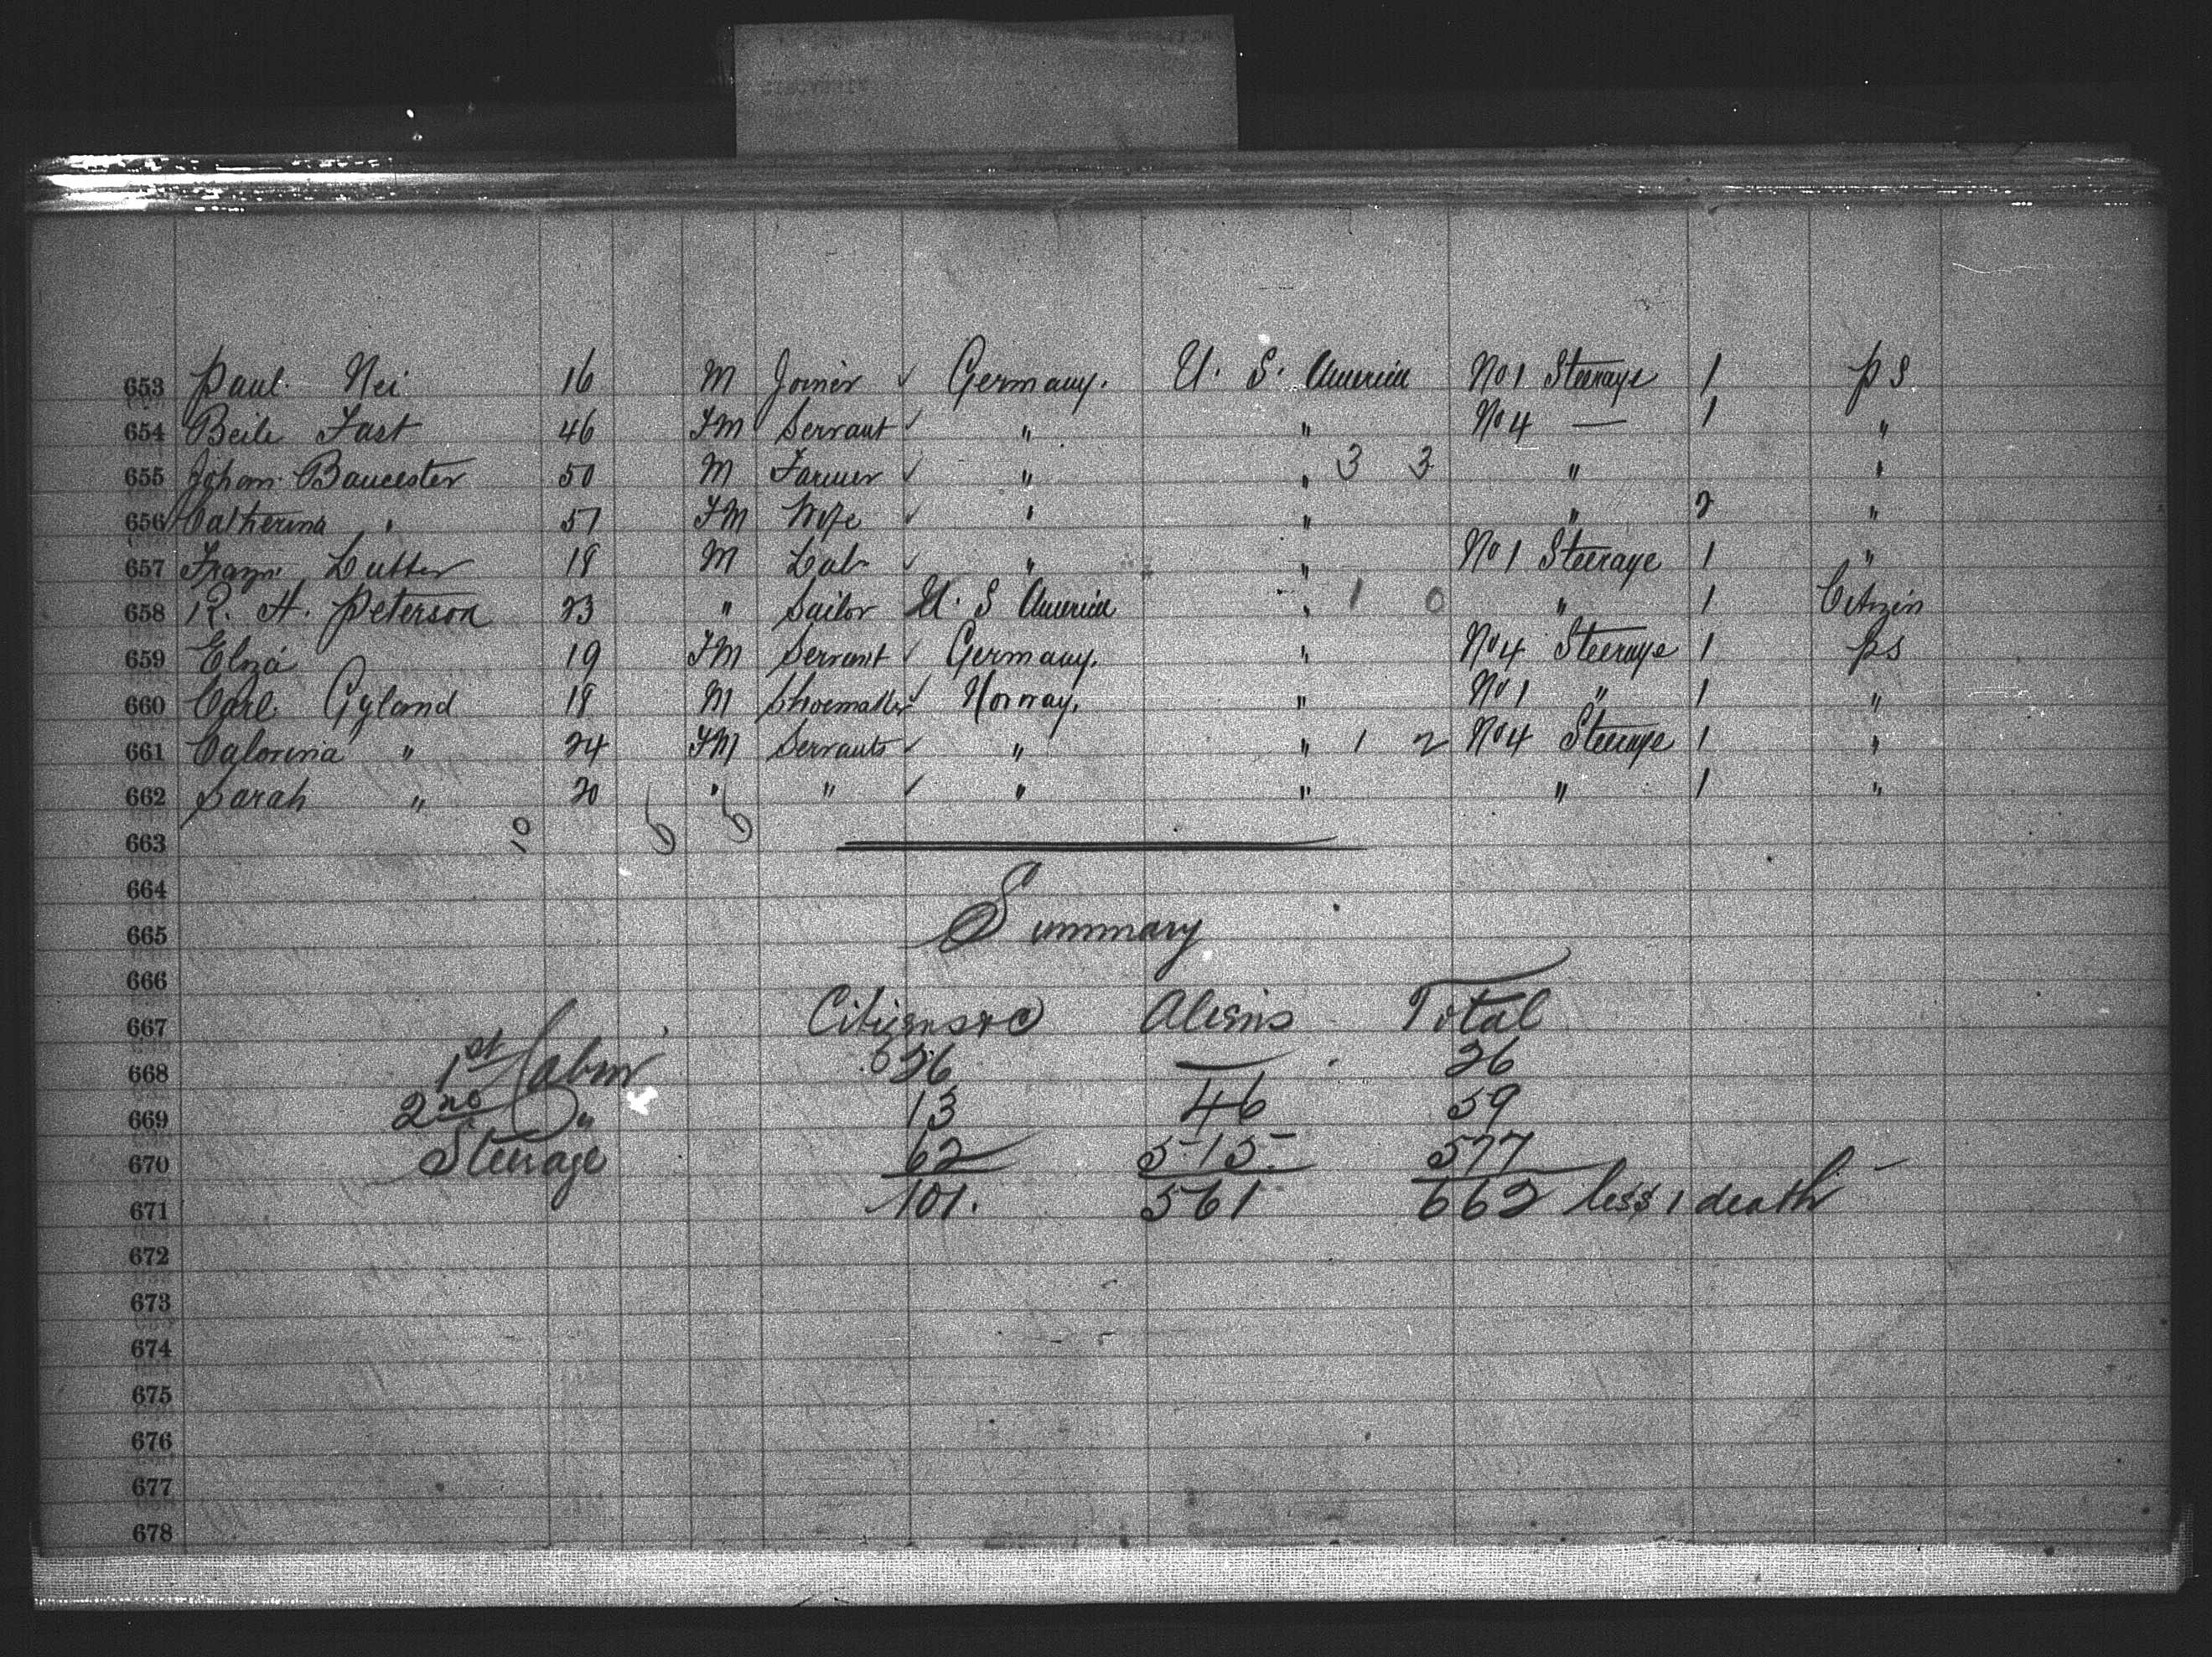 653 Paul Nei 16 M Joiner ✓ Germany. U. S. America No 1 Steerage 1 pS
654 Beile Fast 46 FM Servant ✓ " " No 4 — 1 "
655 Johann Baucester 50 M Farmer ✓ " " 3 3 " "
656 Catherina " 57 FM Wife ✓ " " " 2 "
657 Lutter 18 M Lab ✓ " " No 1 Steerage 1 "
658 R. H. Peterson 23 " Sailor U. S America " 1 0 " 1 Citizin
659 Eliza 19 FM Servant ✓ Germany. " No 4 Steerage 1 ps
660 Carl Gyland 18 M Shoemaker ✓ Norway. " No 1 " 1 "
661 " 24 FM Servants ✓ " " 1 2 No 4 Steerage 1 "
662 Sarah " 20 " " ✓ " " " 1 "
663 10 6 6
664
665 Summary
666
667 Citizens &c Aliens Total
668 1st Cabin 26 — 26
669 2nd " 13 46 59
670 Steerage 62 515 577
671 101. 561 662 less 1 death
672
673
674
675
676
677
678